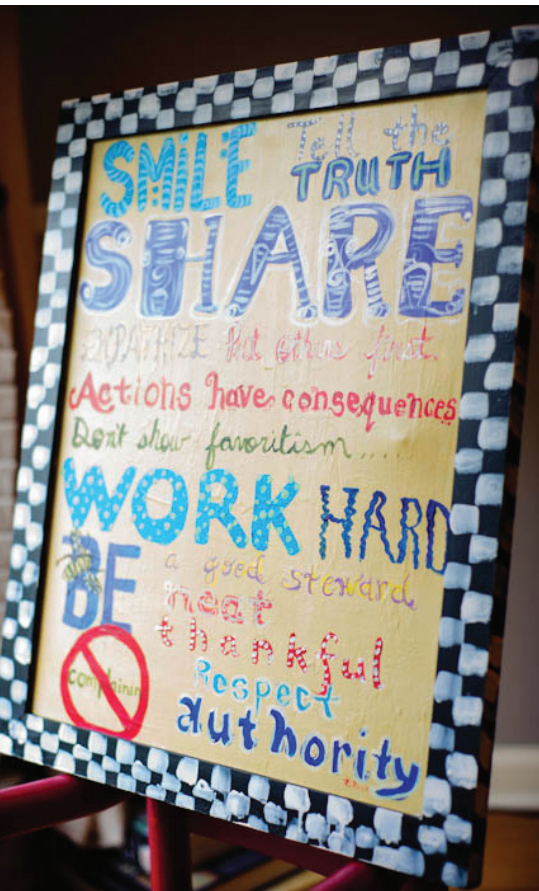 SMILE Tell the
TRUTH
SHARE
EMPATHIZE Put others first.
Actions have consequences
Don't show favoritism.....
WORK HARD
BE a good steward,
neat
thankful
complaining
Respect
authority